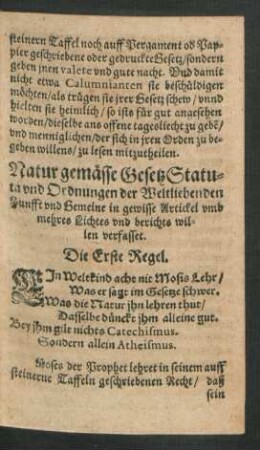 steinern Taffel noch auff Pergament od Pap-
pier geschriebene oder gedruckte Gesetz / sondern
geben jnen valete vnd gute nacht. Vnd damit
nicht etwa Calumnianten sie beschüldigen
möchten / als trügen sie jrer Gesetz schew / vnnd
hielten sie heimlich / so ists für gut angesehen
worden / dieselbe ans offene tagesliecht zu gebē /
vnd menniglichen / der sich in jren Orden zu be-
geben willens / zu lesen mitzutheilen.
Natur gemässe Gesetz Statu-
ta vnd Ordnungen der Weltliebenden
Zunfft vnd Gemeine in gewisse Artickel vmb
mehres Lichtes vnd berichts wil-
len verfasset.
Die Erste Regel.
EIn Weltkind acht nit Mosis Lehr /
Was er sagt im Gesetze schwer.
Was die Natur jhn lehren thut /
Dasselbe dünckt jhm alleine gut.
Bey jhm gilt nichts Catechismus.
Sondern allein Atheismus.
Moses der Prophet lehret in seinem auff
steinerne Taffeln geschriebenen Recht / daß
sein